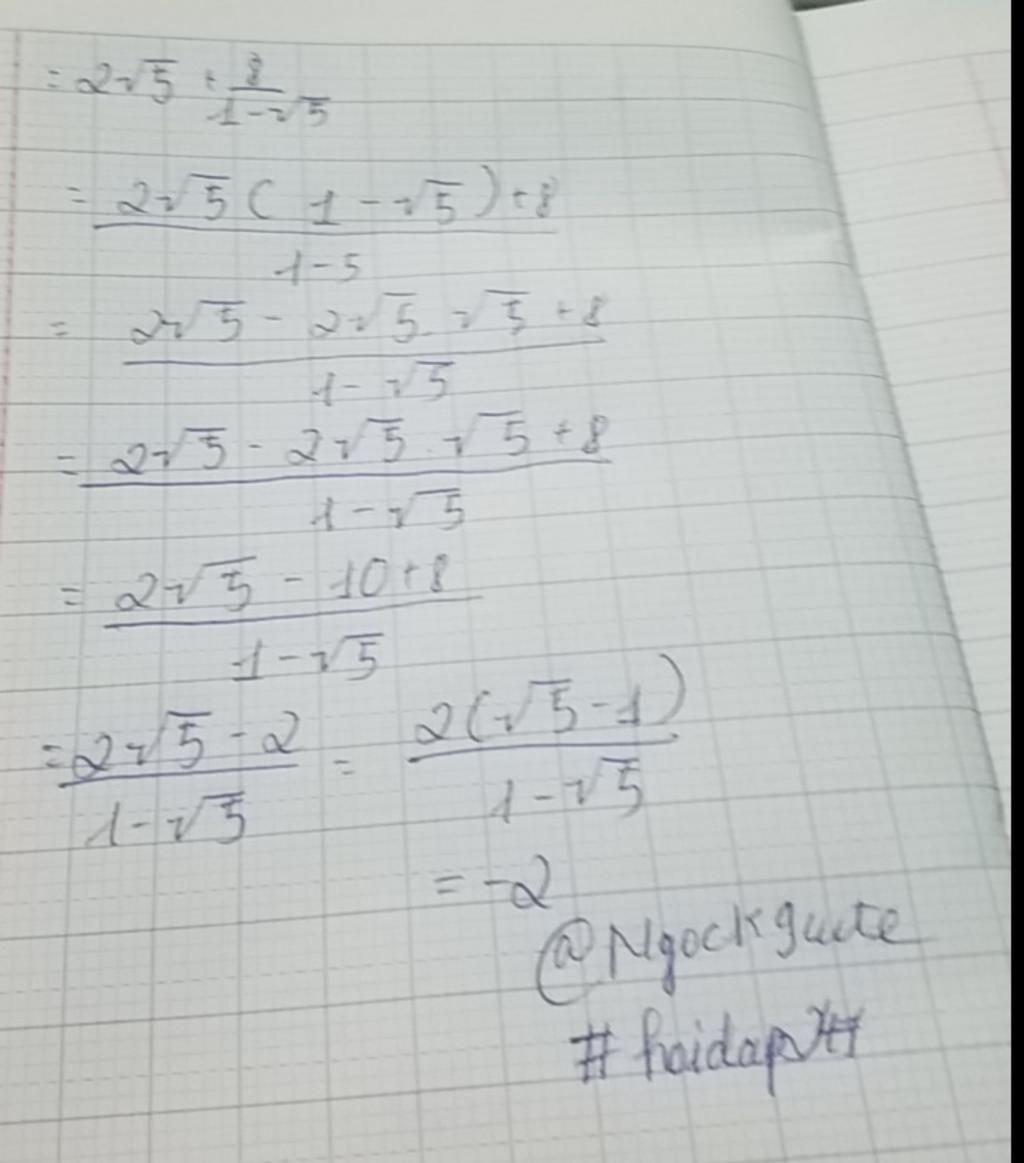 = 2√5 + 8/(1-√5)
= (2√5(1-√5)+8)/(1-5)
= (2√5 - 2√5.√5+8)/(1-√5)
= (2√5 - 2√5.√5+8)/(1-√5)
= (2√5 - 10+8)/(1-√5)
= (2√5-2)/(1-√5) = (2(√5-1))/(1-√5)
= -2
@Ngockguute
#hoidap247